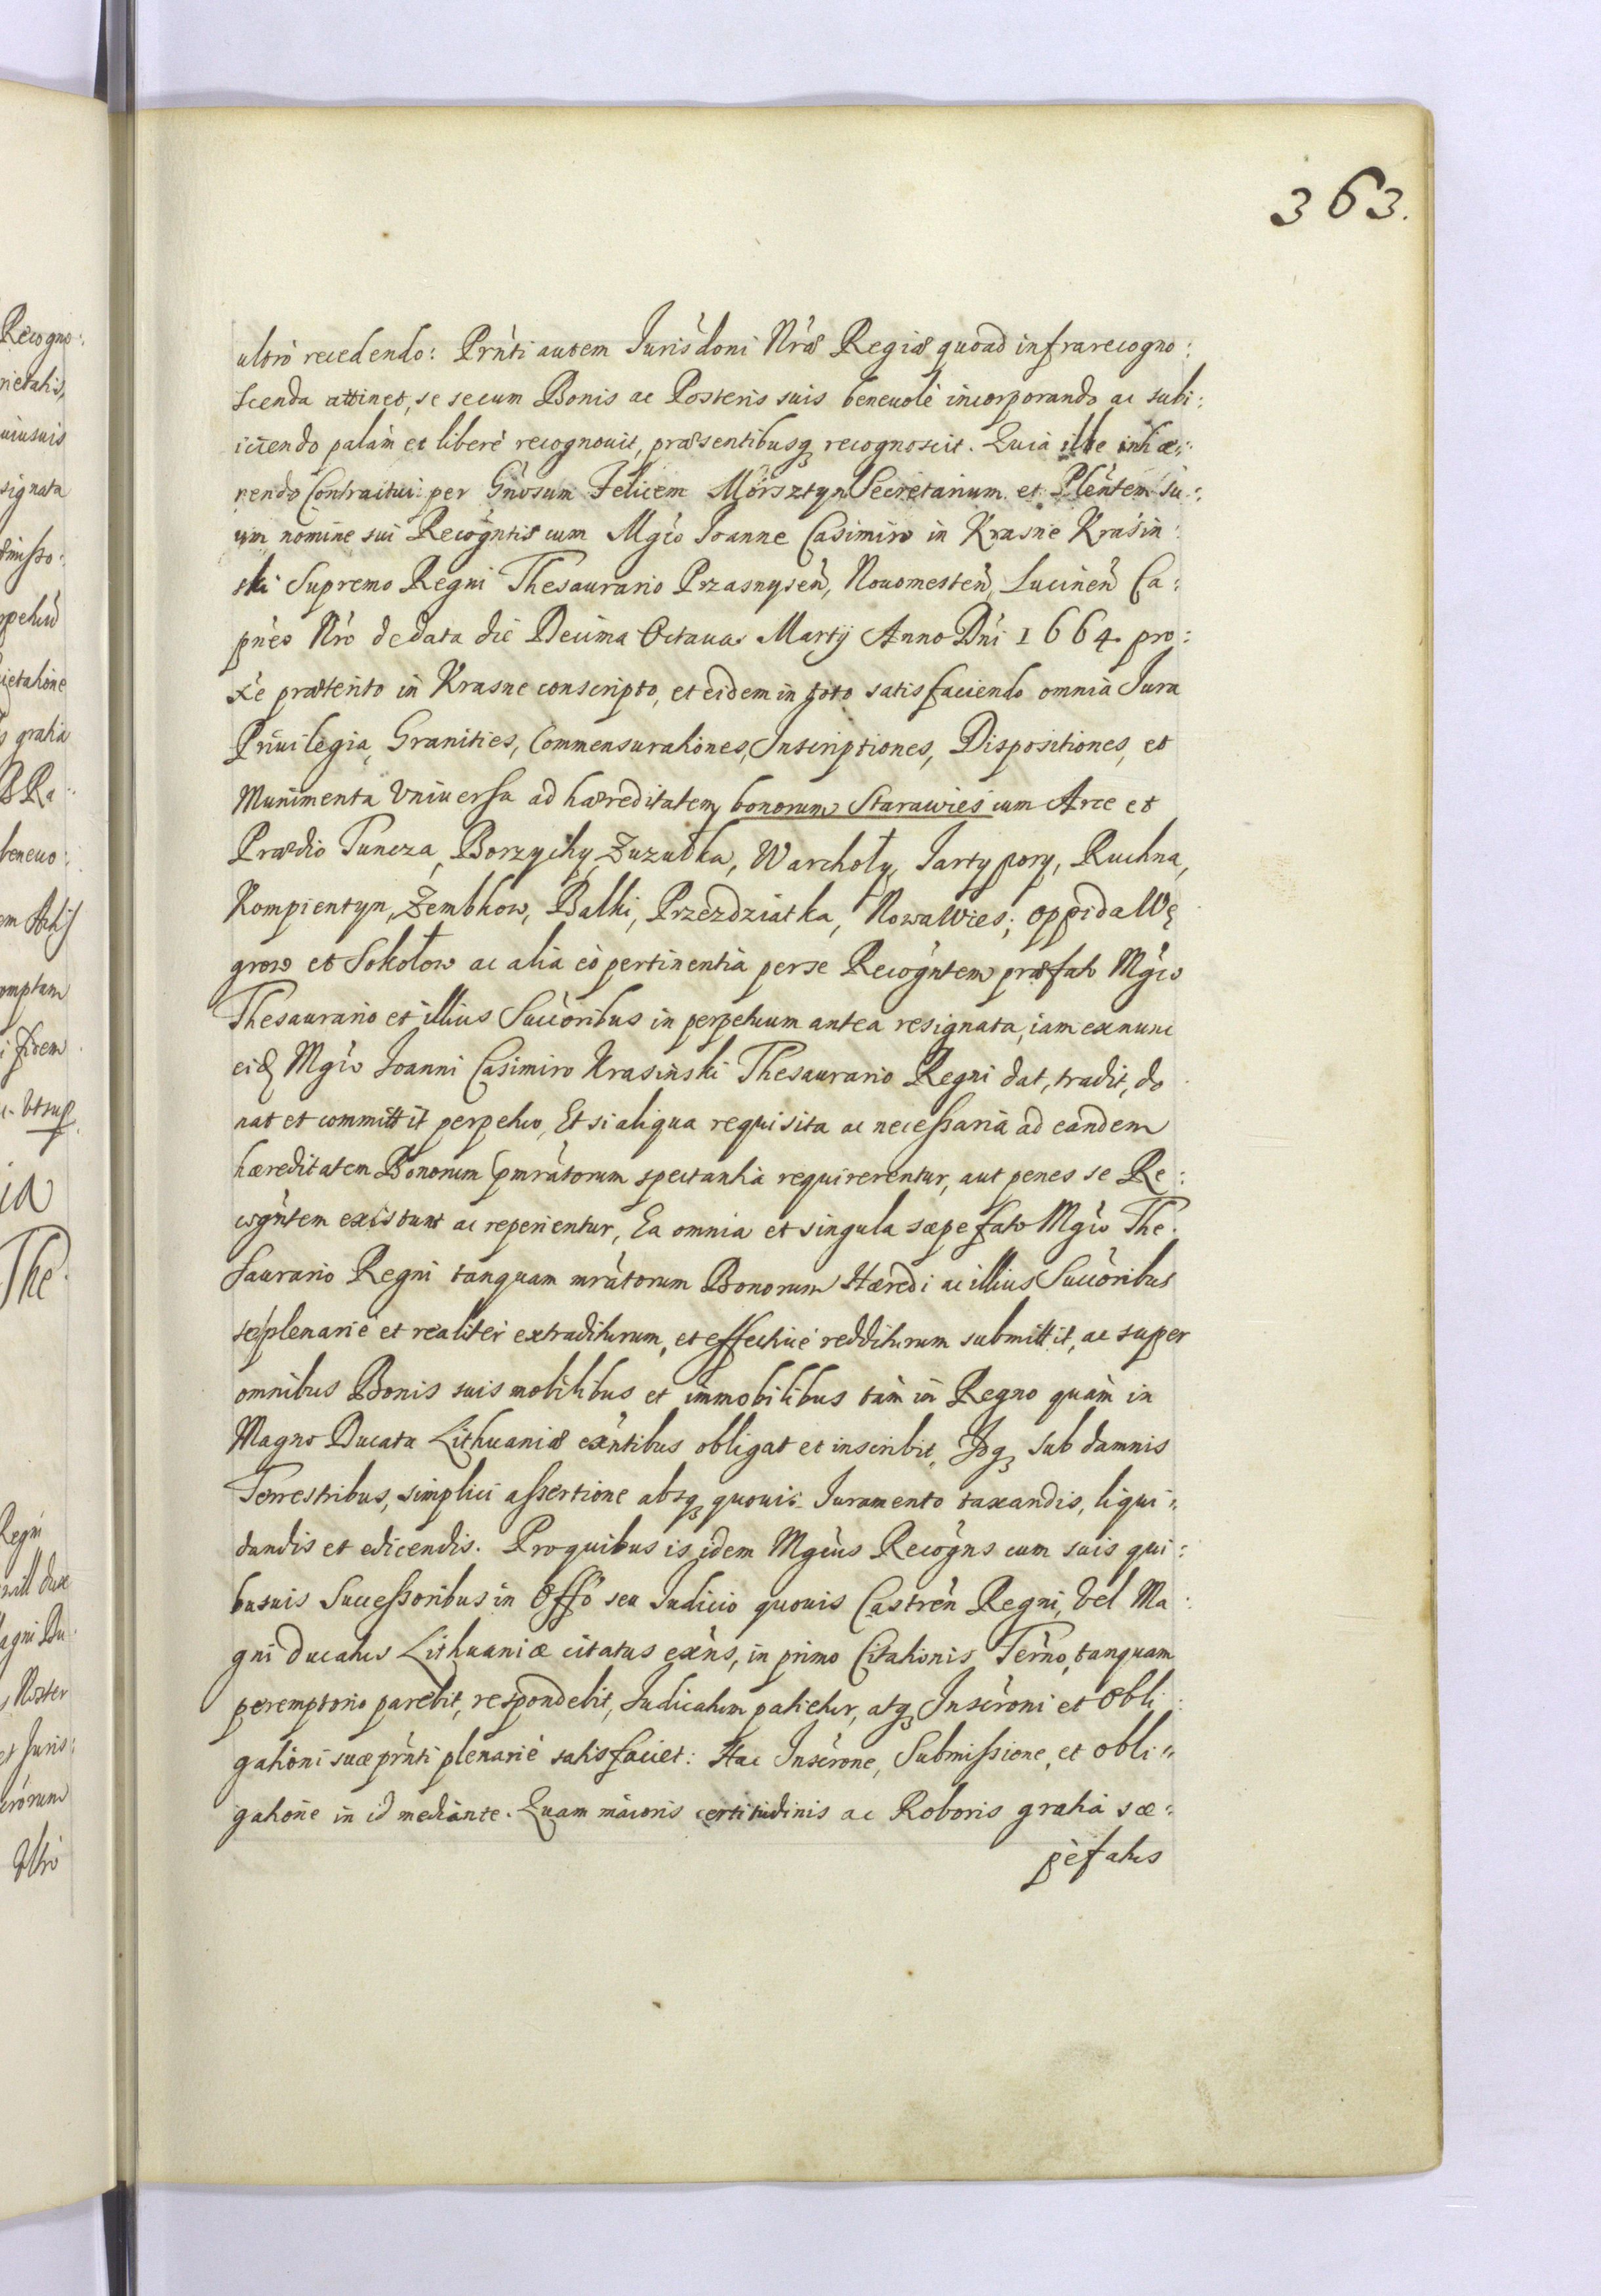 363.
ultrò recedendo: Prńti autem Jurisdoni Nrӕ Regiæ quoad infrarecogno:
scenda attinet, se secum Bonis ac Posteris suis beneuolè incorporando ac subi:
iciendo palàm et liberè recognouit, præsentibusq3 recognoscit. Quia ille inhæ:
rendo Contractui per Gnosum Felicem Morsztyn Secretarium et Plentem su:
um nomine sui Recogntis cum Mgco Joanne Casimiro in Krasne Krasin:
ski Supremo Regni Thesaurario Przasnysen, Nouomesten, Lucinen Ca:
pneo Nro de data die Decima Octaua Martij Anno Dni 1664 pro:
xe præterito in Krasne conscripto, et eidem in toto satisfaciendo omnia Jura
Priuilegia, Granities, Commensurationes, Inscriptiones, Dispositiones, et
Munimenta Vniuersa ad hæreditatem bonorum Starawies cum Arce et
Prædio Tuncza, Borzychy, Zuzułka, Warchoły, Jartypory, Ruchna,
Kompientyn, Zembkow, Balki, Przezdziatka, Nowawies; oppida Wę
grow et Sokołow ac alia eò pertinentia per se Recogntem præfato Mgco
Thesaurario et illius Succoribus in perpetuum antea resignata, iam ex nunc
eid Mgco Joanni Casimiro Krasinski Thesaurario Regni dat, tradit, do
nat et committit perpetuo, Et si aliqua requisita ac necessaria ad eandem
hæreditatem Bonorum pmratorum spectantia requirerentur, aut penes se Re:
cogntem existunt ac reperientur, Ea omnia et singula sæpefato Mgco The:
saurario Regni tanquam mratorum Bonorum Hæredi ac illius Succoribus
se plenariè et realiter extraditurum, et effectiuè redditurum submittit, ac super
omnibus Bonis suis mobilibus et immobilibus tàm in Regno quàm in
Magno Ducatu Lithuaniæ exntibus obligat et inscribit, Idq3 sub damnis
Terrestribus, simplici assertione absq3 quouis Juramento taxandis, liqui:
dandis et edicendis. Pro quibus is idem Mgcus Recogns cum suis qui:
busuis Successoribus in Offo seu Judicio quouis Castren Regni, vel Ma:
gni Ducatus Lithuaniæ citatus exns, in primo Citationis Terno, tanquam
peremptorio parebit, respondebit, Judicatum patietur, atq3 Inscroni et Obli:
gationi suæ prnti plenariè satisfaciet: Hac Inscrone, Submissione, et obli:
gatione in id mediante. Quam maioris certitudinis ac Roboris gratia sæ:
pèfatus